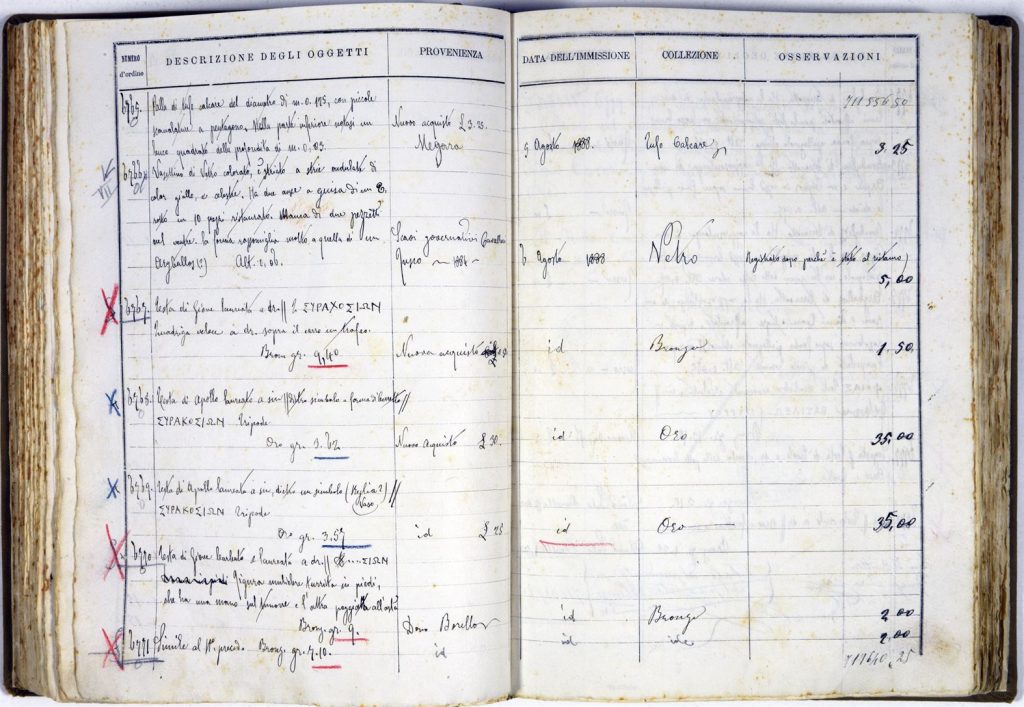 NUMERO d'ordine
DESCRIZIONE DEGLI OGGETTI
PROVENIENZA
DATA DELL'IMMISSIONE
COLLEZIONE
OSSERVAZIONI
711556 50
6765. Palla di tufo calcare del diametro di m. 0. 175, con piccole
scanalature a pentagono. Nella parte inferiore notasi un
buco quadrato della profondità di m. 0, 03.
Nuovo acquisto £ 3. 25.
Megara
5 Agosto 1888. Tufo Calcare
3. 25
VII
6766. Vasettino di Vetro colorato, a strie ondulate di
color giallo, e celeste. Ha due anse a guisa di un
rotto in 10 pezzi restaurato. Manca di due pezzetti
nel ventre. La forma rassomiglia molto a quella di un
Aryballos (?) Alt. 0, 06.
Scavi governativi
1886
6 Agosto 1888
Vetro
Registrato dopo perchè è stato al restauro
5, 00
6767. Testa di Giove laureata a dr. || ΣΥΡΑΚΟΣΙΩΝ
Quadriga veloce a dr. sopra il
Bron. gr. 9,40
Nuovo acquisto
id
Bronzo
1. 50
6768. Testa di Apollo laureato a sin || dietro simbolo a forma di
ΣΥΡΑΚΟΣΙΩΝ tripode
Oro gr. 3. 62
Nuovo acquisto £ 30.
id
Oro
35, 00
6769. Testa di Apollo laureato a sin, dietro un simbolo (
Vaso) ||
ΣΥΡΑΚΟΣΙΩΝ tripode
Oro gr. 3.57
id £ 25
id
Oro
35,00
6770. Testa di Giove barbata e laureata a dr. || ΣΙΩΝ
Figura muliebre turrita in piedi,
che ha una mano sul timone e l'altra
Bronz. gr. 9.
Dono Borello
id
Bronzo
2. 00
6771. Simile al N° preced. Bronz. gr. 7. 10.
id
id
id
2. 00
711640, 25